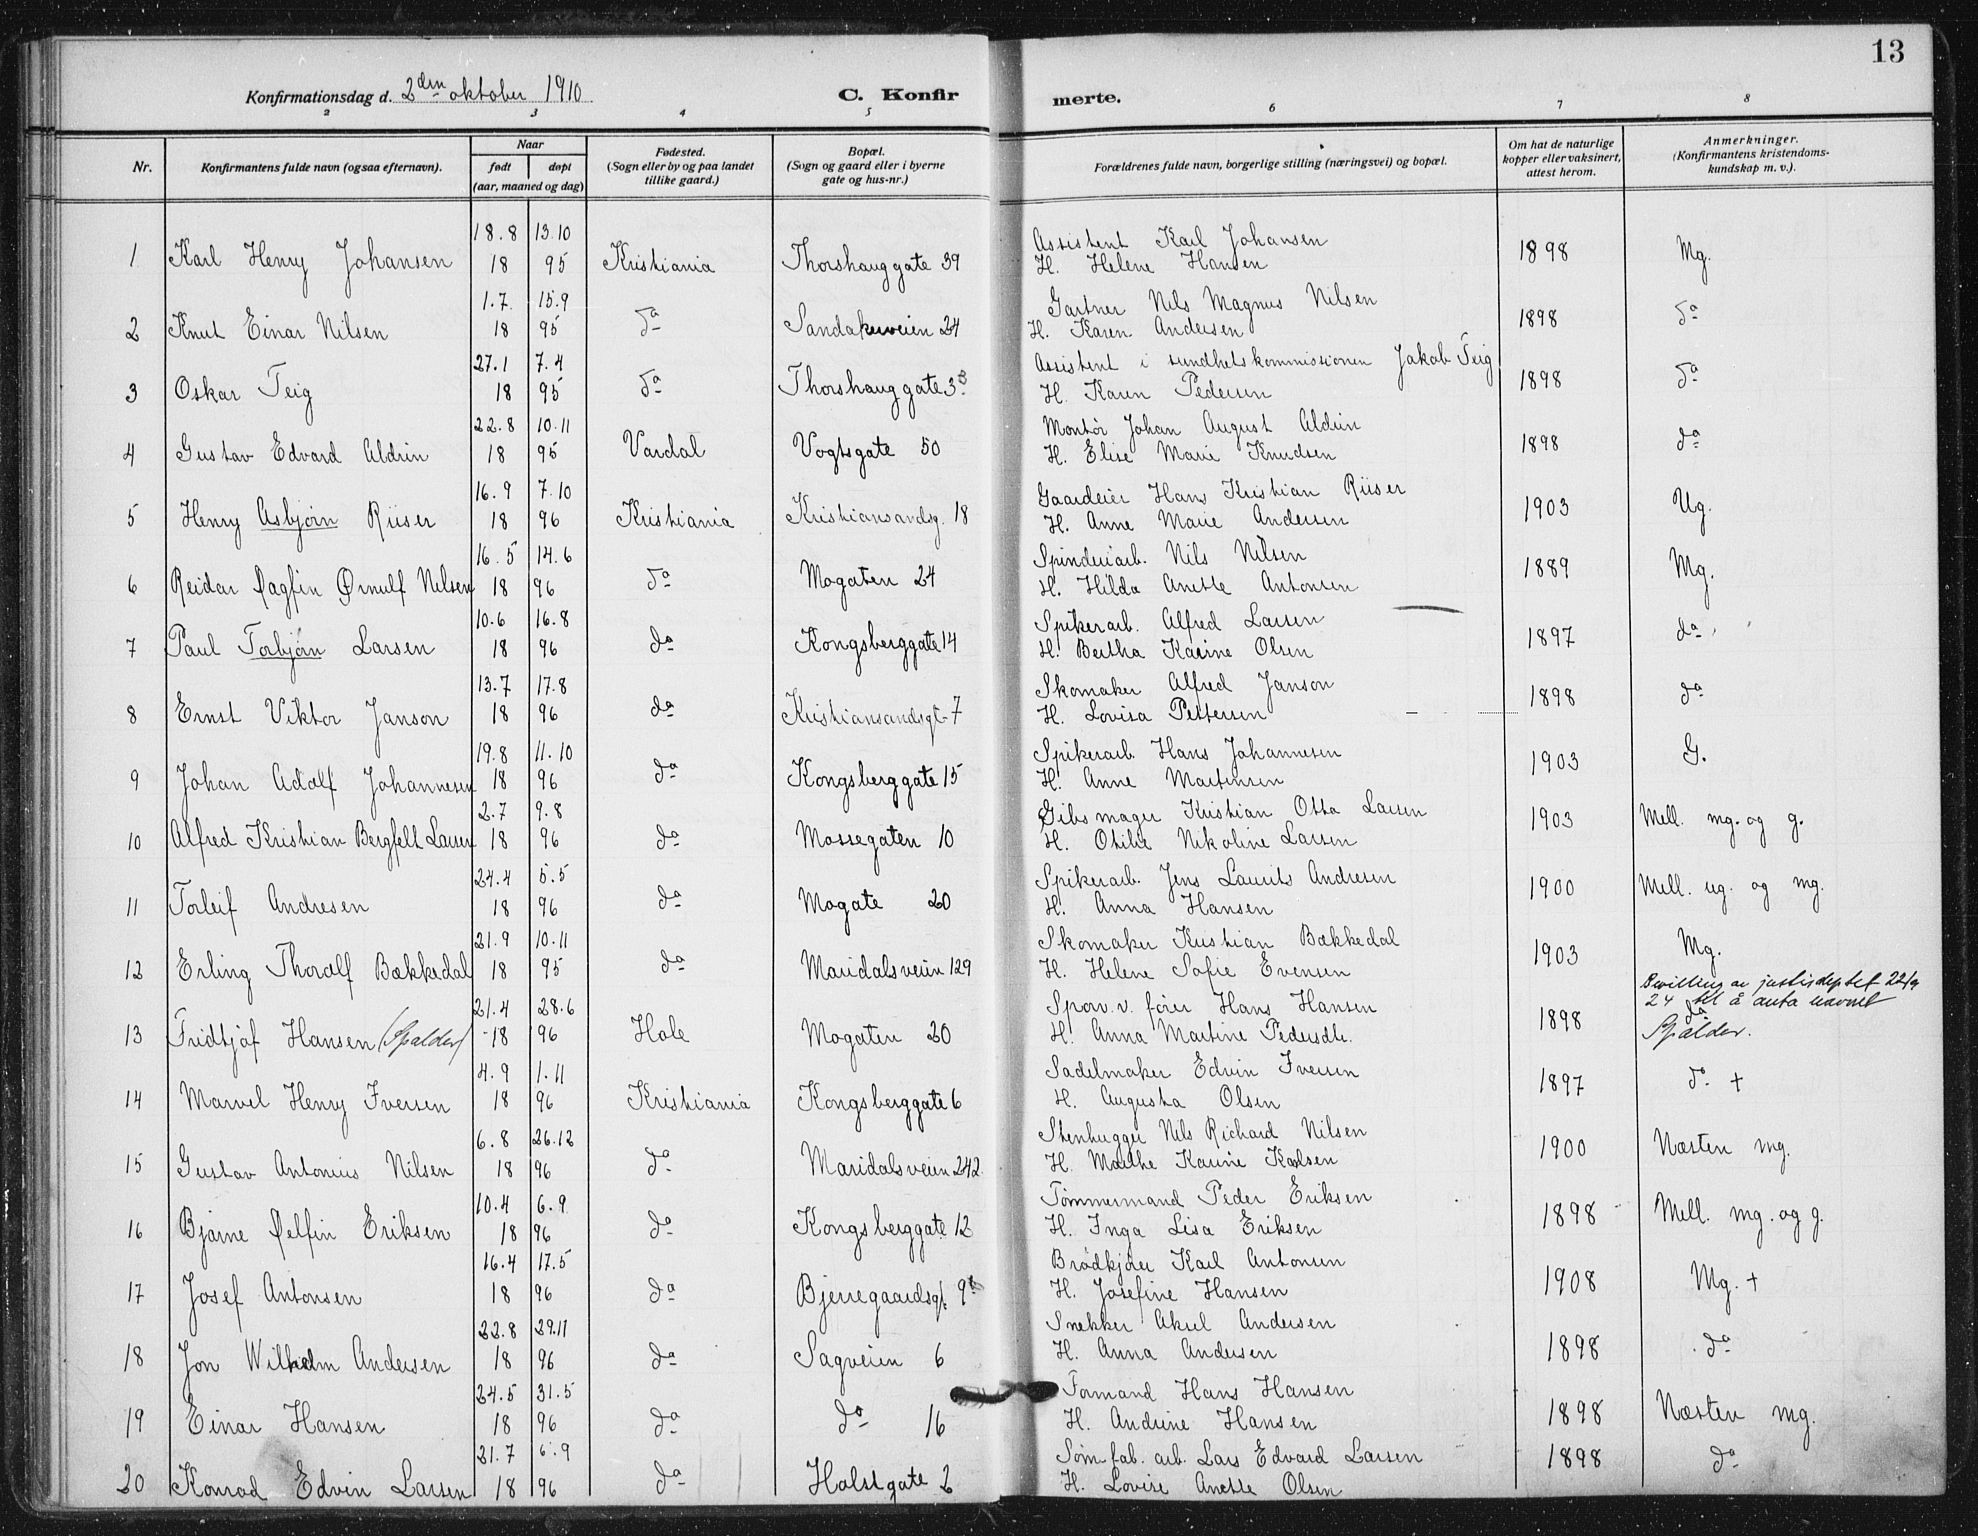 13
Konfirmationsdag d. 2den oktober 1910
C. Konfir merte.
2 3 4 5 6 7 8
Nr. Konfirmantens fulde navn (ogsaa efternavn). Naar født døpt (aar, maaned og dag) Fødested. (Sogn eller by og paa landet tillike gaard.) Bopæl. (Sogn og gaard eller i byerne gate og hus-nr.) Forældrenes fulde navn, borgerlige stilling (næringsvei) og bopæl. Om hat de naturlige kopper eller vaksinert, attest herom. Anmerkninger. (Konfirmantens kristendoms-kundskap m. v.).
18.8 13.10 Assistent Karl Johansen
1 Karl Henry Johansen 18 95 Kristiania Thorshauggate 39 H. Helene Hansen 1898 Mg.
1.7 15.9 Gartner Nils Magnus Nilsen
2 Knut Einar Nilsen 18 95 da Sandakerveien 24 H. Karen Andersen 1898 da
27.1 7.4 Assistent i sundhetskommissionen Jakob Teig
3 Oskar Teig 18 95 da Thorshauggate 3B H. Karen Pedersen 1898 da
22.8 10.11 Montør Johan August Aldrin
4 Gustav Edvard Aldrin 18 95 Vardal Vogtsgate 50 H. Elise Marie Knudsen 1898 da
16.9 7.10 Gaardeier Hans Kristian Riiser
5 Henry Asbjørn Riiser 18 96 Kristiania Kristiansandsg. 18 H. Anne Marie Andersen 1903 Ug.
16.5 14.6 Spinderiarb. Nils Nilsen
6 Reidar Dagfin Ørnulf Nilsen 18 96 da Mogaten 24 H. Hilda Anette Antonsen 1889 Mg.
10.6 16.8 Spikerarb. Alfred Larsen
7 Paul Torbjørn Larsen 18 96 da Kongsberggate 14 H. Bertha Karine Olsen 1897 da
13.7 17.8 Skomaker Alfred Janson
8 Ernst Viktor Janson 18 96 da Kristiansandsgt. 7 H. Lovisa Pettersen 1898 da
19.8 11.10 Spikerarb. Hans Johannesen
9 Johan Adolf Johannesen 18 96 da Kongsberggate 15 H. Anne Martinsen 1903 G.
2.7 9.8 Gibsmager Kristian Otto Larsen
10 Alfred Kristian Bergfelt Larsen 18 96 da Mossegaten 10 H. Otilie Nikoline Larsen 1903 Mell. mg. og g.
24.4 5.5 Spikerarb. Jens Laurits Andresen
11 Torleif Andresen 18 96 da Mogate 20 H. Anna Hansen 1900 Mell. ug. og mg.
21.9 10.11 Skomaker Kristian Bækkedal
12 Erling Thoralf Bækkedal 18 95 da Maridalsveien 129 H. Helene Sofie Evensen 1903 Mg.
21.4 28.6 Sporv. v. fører Hans Hansen Bevilling av justisdeptet 22/9
13 Fridtjof Hansen (Spalder) 18 96 Hole Mogaten 20 H. Anna Martine Pedersdtr. 1898 da 24 til å anta navnet Spalder.
4.9 1.11 Sadelmaker Edvin Iversen
14 Marvel Henry Iversen 18 96 Kristiania Kongsberggate 6 H. Augusta Olsen 1897 do. +
6.8 26.12 Stenhugger Nils Richard Nilsen
15 Gustav Antonius Nilsen 18 96 da Maridalsveien 242 H. Marthe Karine Karlsen 1900 Næsten mg.
10.4 6.9 Tømmermand Peder Eriksen
16 Bjarne Delfin Eriksen 18 96 da Kongsberggate 12 H. Inga Lisa Eriksen 1898 Mell. mg. og g.
16.4 17.5 Brødkjører Karl Antonsen
17 Josef Antonsen 18 96 da Bjerregaardsgt. 9 H. Josefine Hansen 1908 Mg. +
22.8 29.11 Snekker Aksel Andersen
18 Jon Wilhelm Andersen 18 96 da Sagveien 6 H. Anna Andersen 1898 da
24.5 31.5 Formand Hans Hansen
19 Einar Hansen 18 96 da do 16 H. Andrine Hansen 1898 Næsten mg.
21.7 6.9 Sømfab. arb. Lars Edvard Larsen
20 Konrad Edvin Larsen 18 96 da Holstgate 2 H. Lovise Anette Olsen 1898 da